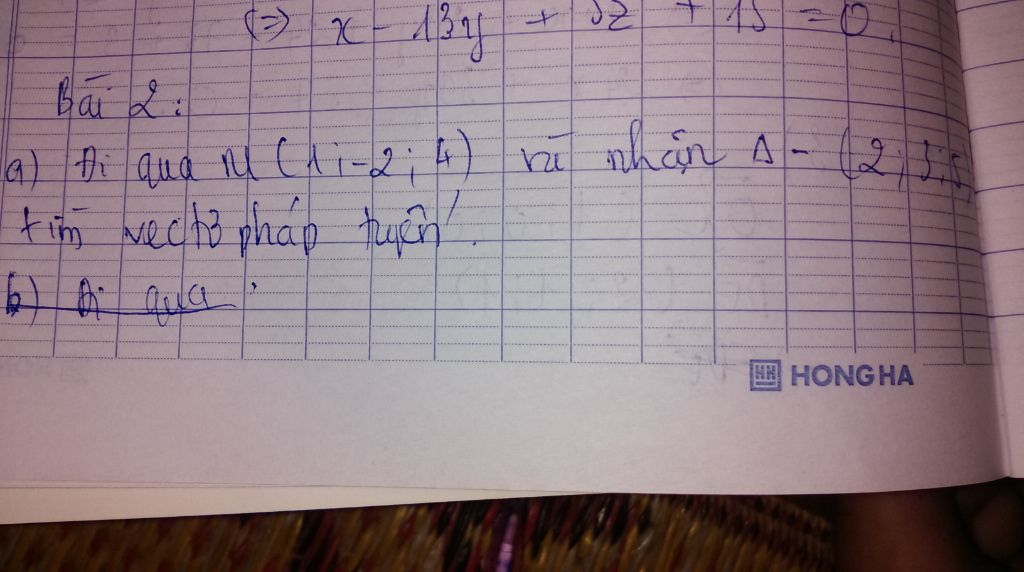 (=) x - 13y + 5z + 15 = 0.
Bài 2:
a) Đi qua M (1; -2; 4) và nhận Δ = (2; 3; 5)
tìm vectơ pháp tuyến.
b) Đi qua
HH HONG HA